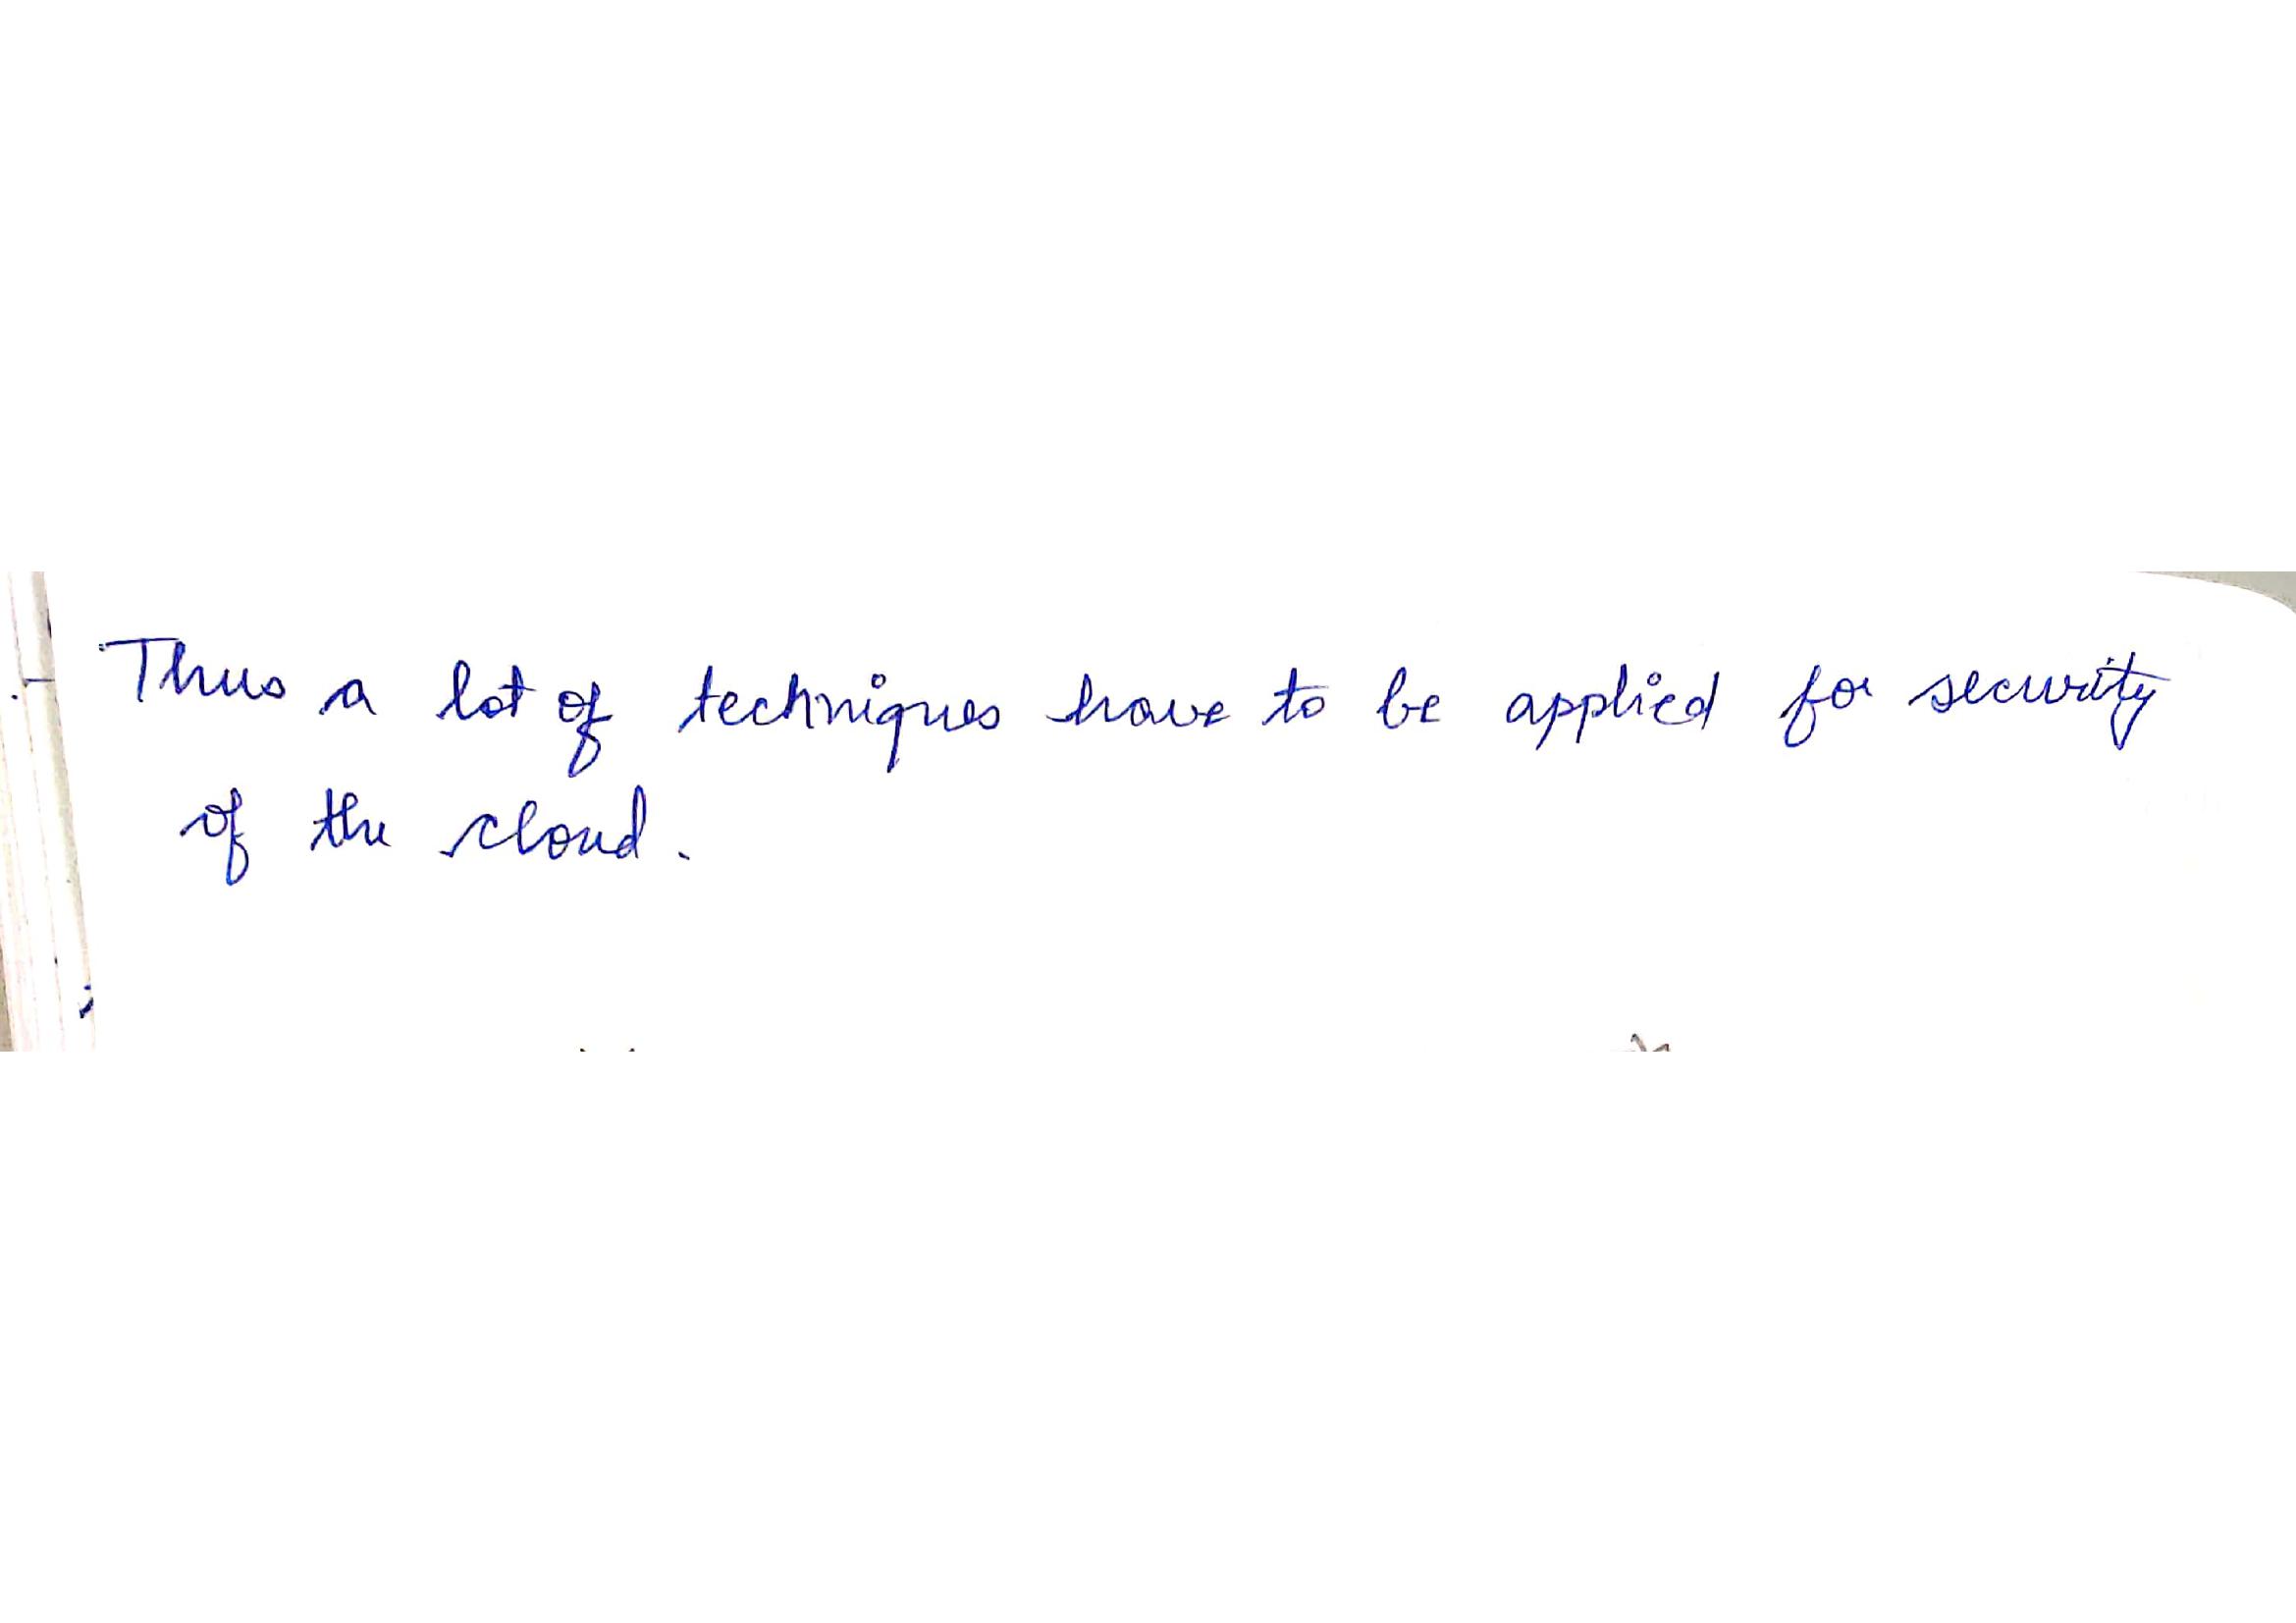 Thus a lot of techniques have to be applied for security
of the cloud.